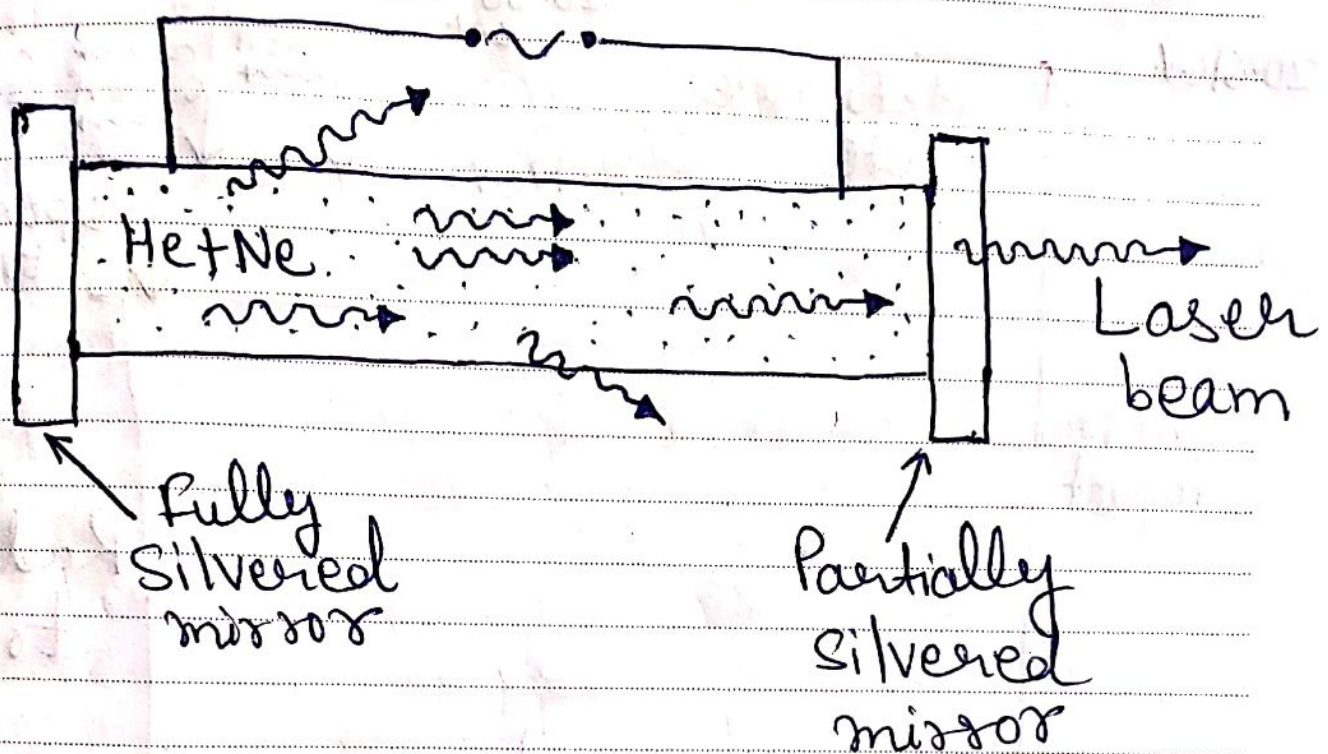 He+Ne
Laser
beam
Fully
Silvered
mirror
Partially
Silvered
mirror